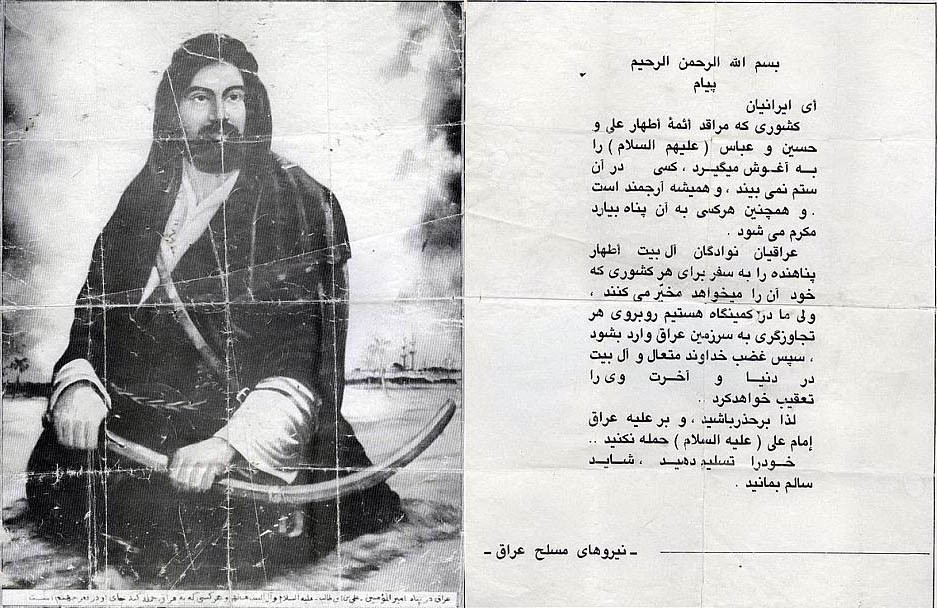 بسم الله الرحمن الرحيم
پیام
أی ایرانیان
کشوری که مراقد أئمۀ أطهار علی و
حسین و عباس ( علیهم السلام ) را
به آغوش میگیرد ، کسی در آن
ستم نمی بیند ، و همیشه أرجمند است
. و همچنین هرکسی به آن پناه بیارد
مکرم می شود .
عراقیان نوادگان آل بیت أطهار
پناهنده را به سفر برای هر کشوری که
خود آن را میخواهد مخیّر می کنند ،
ولی ما در کمینگاه هستیم روبروی هر
تجاوزگری به سرزمین عراق وارد بشود
، سپس غضب خداوند متعال و آل بیت
در دنیا و أخرت وی را
تعقیب خواهدکرد ..
لذا برحذرباشید ، و بر علیه عراق
إمام علی ( علیه السلام ) حمله نکنید ..
خودرا تسلیم دهید ، شاید
سالم بمانید .
ـ نیروهای مسلح عراق ـ
عراق در پناه أمیرالمؤمنین ، علی بن أبی طالب علیه السلام و آل بیت و هرکسی که به عراق حمله کند جای او در قعر جهنم است